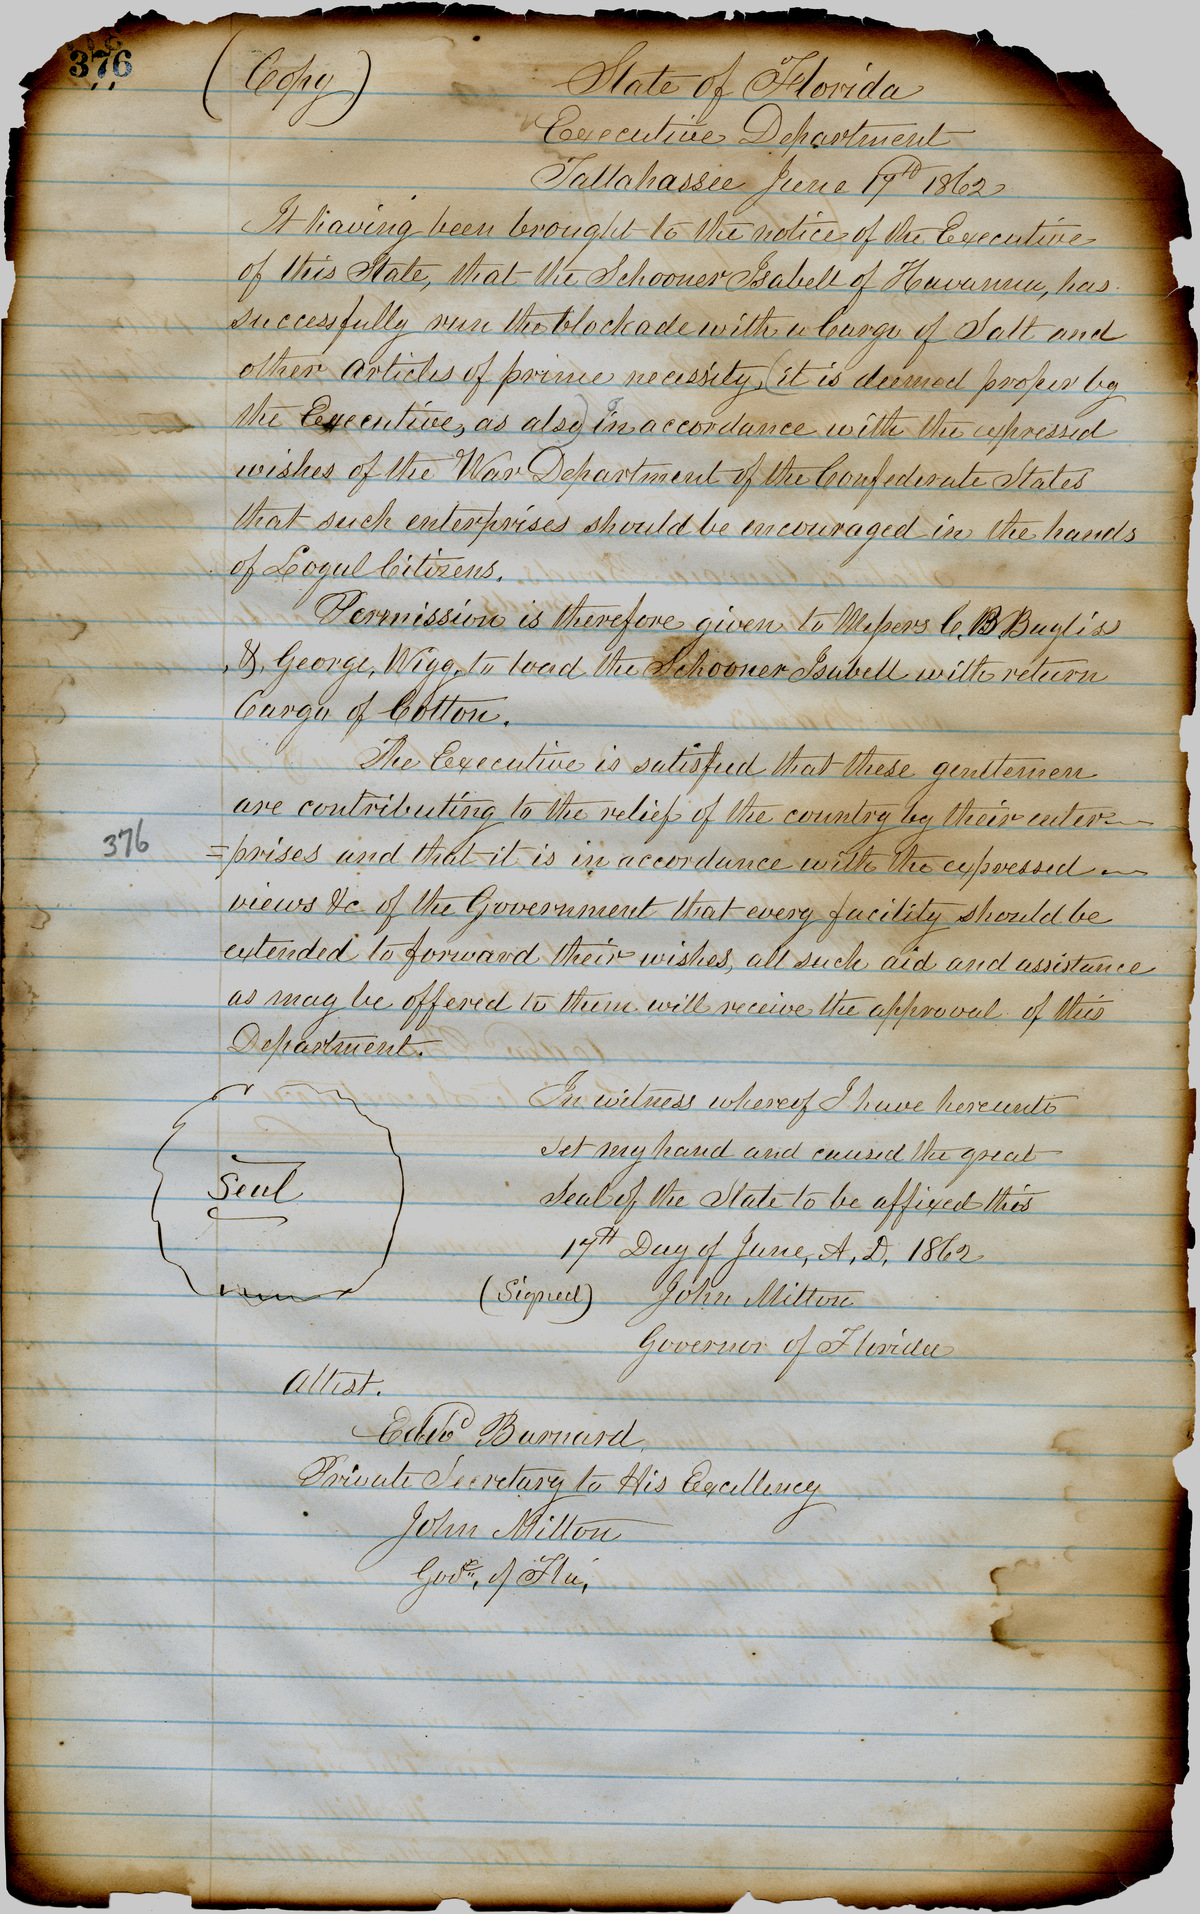 376
(Copy)
State of Florida
Executive Department
Tallahassee June 17th 1862
It having been brought to the notice of the Executive
of this State, that the Schooner Isabell of Havanna, has
successfully run the blockade with a Cargo of Salt and
other articles of prime necessity, (it is deemed proper by
the Executive, as also) in accordance with the expressed
wishes of the War Department of the Confederate States
that such enterprises should be encouraged in the hands
of Loyal Citizens.
Permission is therefore given to Messers C. B Baylis
, &, George, Wigg, to load the Schooner Isabell with return
Cargo of Cotton.
The Executive is satisfied that these gentlemen
are contributing to the relief of the country by their enter
=prises and that it is in accordance with the expressed
376
views &c of the Government that every facility should be
extended to forward their wishes, all such aid and assistance
as may be offered to them will receive the approval of this
Department.
In witness whereof I have hereunto
set my hand and caused the great
Seal of the State to be affixed this
17th Day of June, A, D, 1862
Seal
(Signed) John Milton
Governor of Florida
Attest.
Barnard,
Private Secretary to His Excellency
John Milton
Govr. of Fla,